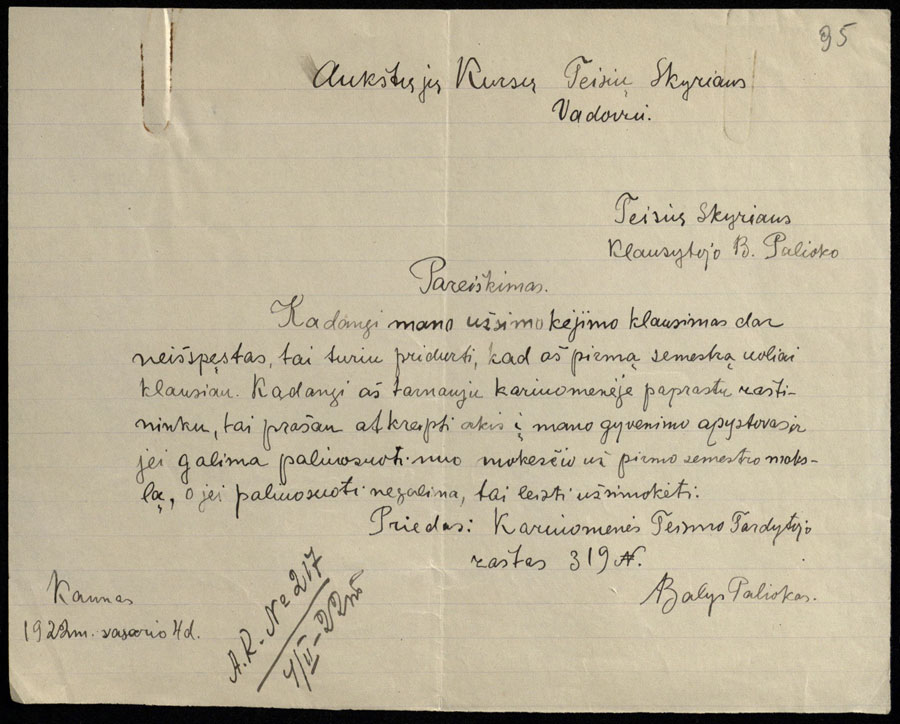 95
Aukštųjų Kursų Teisių Skyriaus
Vadovui.
Teisių Skyriaus
Klausytojo B. Palioko
Pareiškimas.
Kadangi mano užsimokėjimo klausimas dar
neišspęstas, tai turiu pridurti, kad aš pirmą semestrą uoliai
klausiau. Kadangi aš tarnauju kariuomenėje paprastu rašti-
ninku, tai prašau atkreipti akis į mano gyvenimo apystovas ir
jei galima paliuosuoti nuo mokesčio už pirmo semestro moks-
lą, o jei paliuosuoti negalima, tai leisti užsimokėti.
Priedas: Kariuomenės Teismo Tardytojo
raštas 319 N.
Balys Paliokas.
Kaunas
1922 m. vasario 4 d.
A.R. № 217
4/II-22